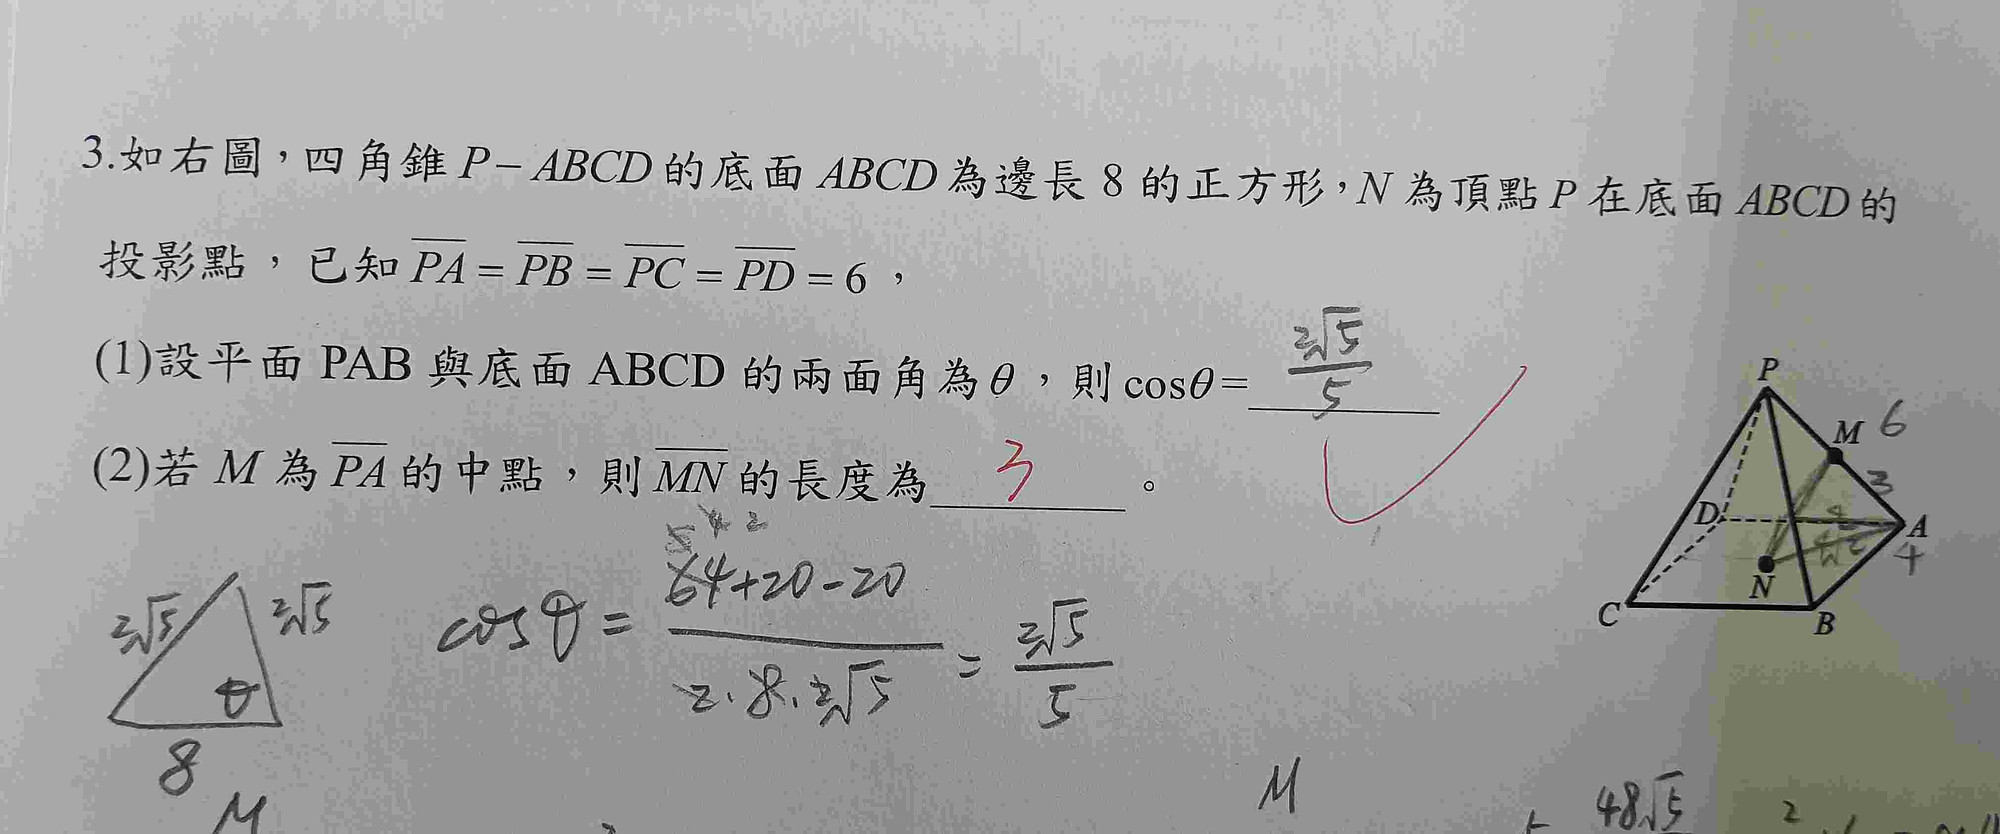 3.如右圖，四角錐 P－ABCD 的底面 ABCD 為邊長 8 的正方形，N 為頂點 P 在底面 ABCD 的
投影點，已知 PA = PB = PC = PD = 6，
(1)設平面 PAB 與底面 ABCD 的兩面角為θ，則 cosθ= 2√5/5
(2)若 M 為 PA 的中點，則 MN 的長度為 3 。
P
M 6
3
D
A
4
N
C
B
2√5 2√5
θ
8
cosθ = (64+20-20)/(2·8·2√5) = 2√5/5
M
M
48√5
2